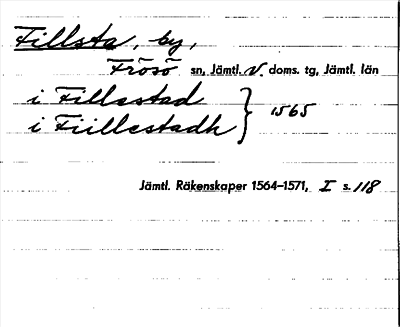 Fillsta, by,
Frösö sn, Jämtl. v. doms. tg, Jämtl. län
i Fillestad } 1565
i Fiillestadh
Jämtl. Räkenskaper 1564–1571, I s. 118